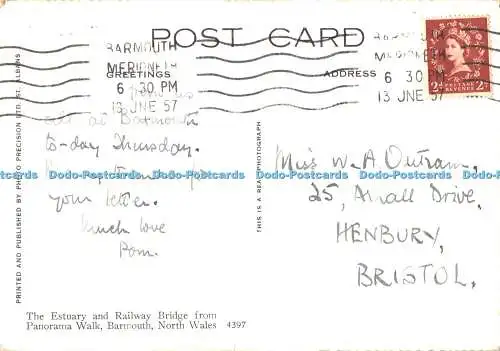 POST CARD
GREETINGS
ADDRESS
BARMOUTH
MERIONETH
6 30 PM
13 JNE 57
MERIONETH
6 30 PM
13 JNE 57
2D POSTAGE REVENUE 2D
out at Barmouth
to-day Thursday.
your letter.
Much love
Pom.
Miss W. A Outram,
25, Amall Drive,
HENBURY,
BRISTOL.
PRINTED AND PUBLISHED BY PHOTO PRECISION LTD. ST. ALBANS
THIS IS A REAL PHOTOGRAPH
Dodo-Postcards Dodo-Postcards Dodo-Postcards Dodo-Postcards Dodo-Postcards
The Estuary and Railway Bridge from
Panorama Walk, Barmouth, North Wales 4397